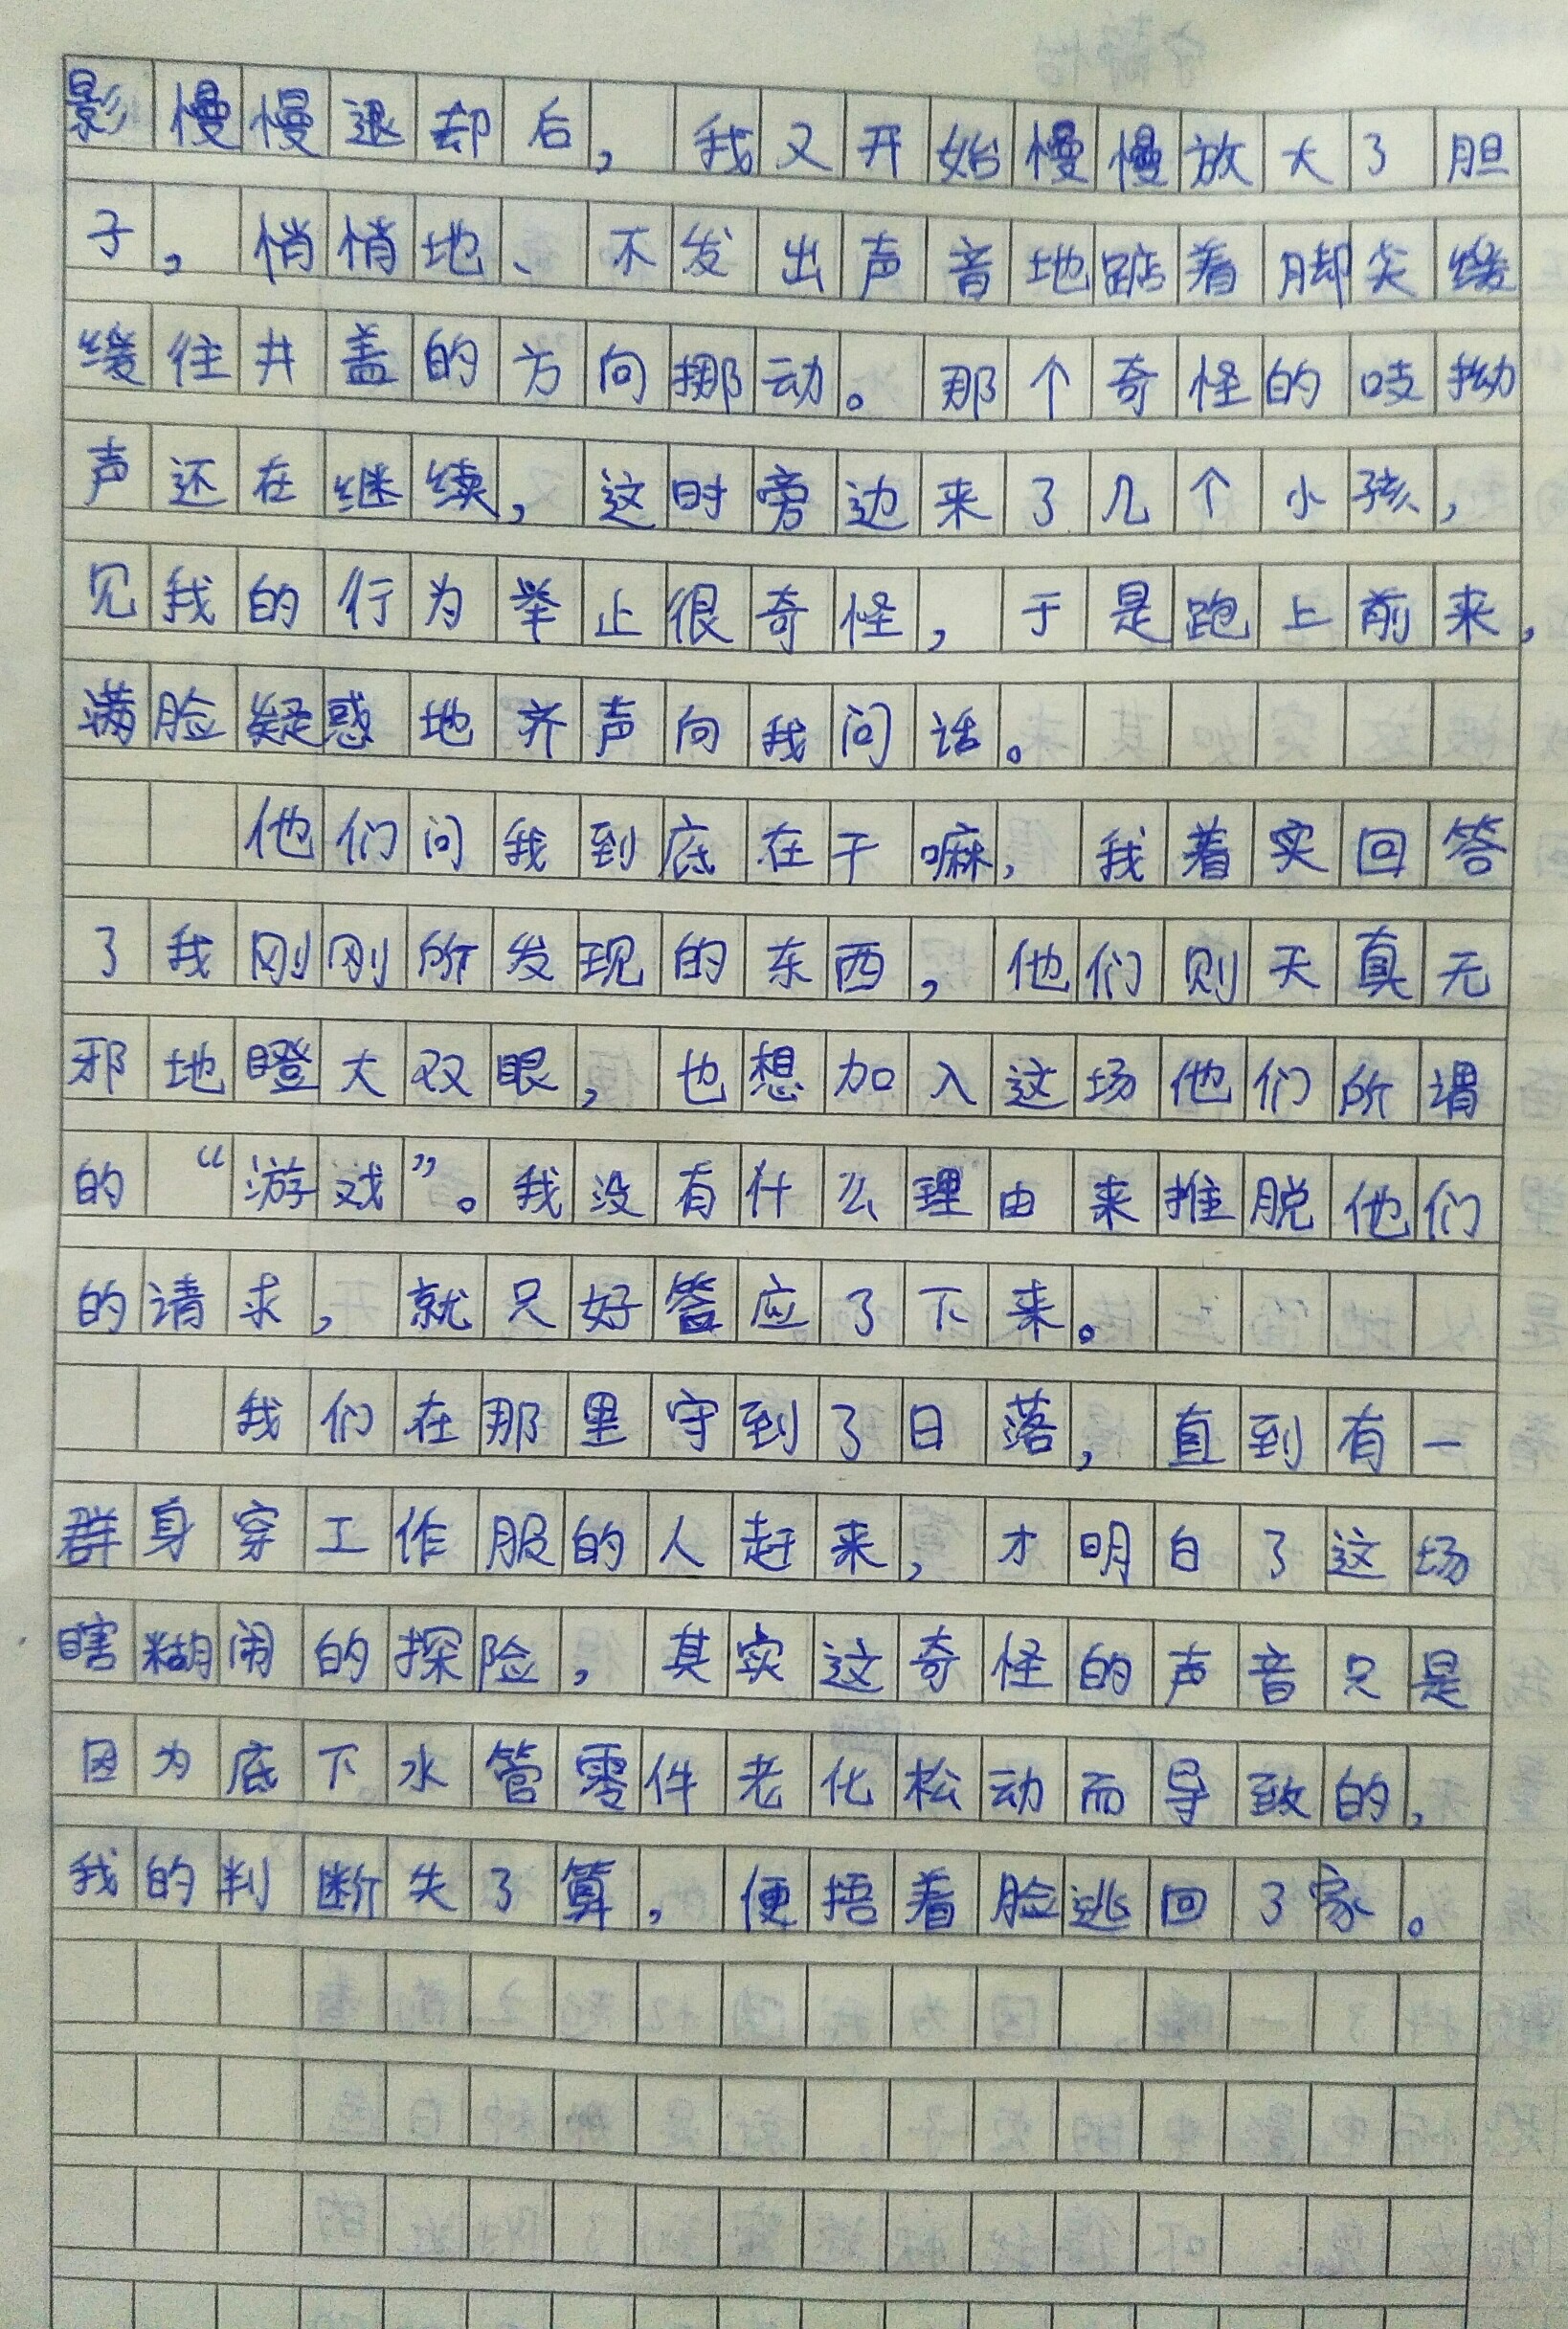 影慢慢退却后，我又开始慢慢放大了胆
子，悄悄地、不发出声音地踮着脚尖缓
缓往井盖的方向挪动。那个奇怪的吱拗
声还在继续，这时旁边来了几个小孩，
见我的行为举止很奇怪，于是跑上前来，
满脸疑惑地齐声向我问话。
他们问我到底在干嘛，我着实回答
了我刚刚所发现的东西，他们则天真无
邪地瞪大双眼，也想加入这场他们所谓
的“游戏”。我没有什么理由来推脱他们
的请求，就只好答应了下来。
我们在那里守到了日落，直到有一
群身穿工作服的人赶来，才明白了这场
瞎糊闹的探险，其实这奇怪的声音只是
因为底下水管零件老化松动而导致的，
我的判断失了算，便捂着脸逃回了家。